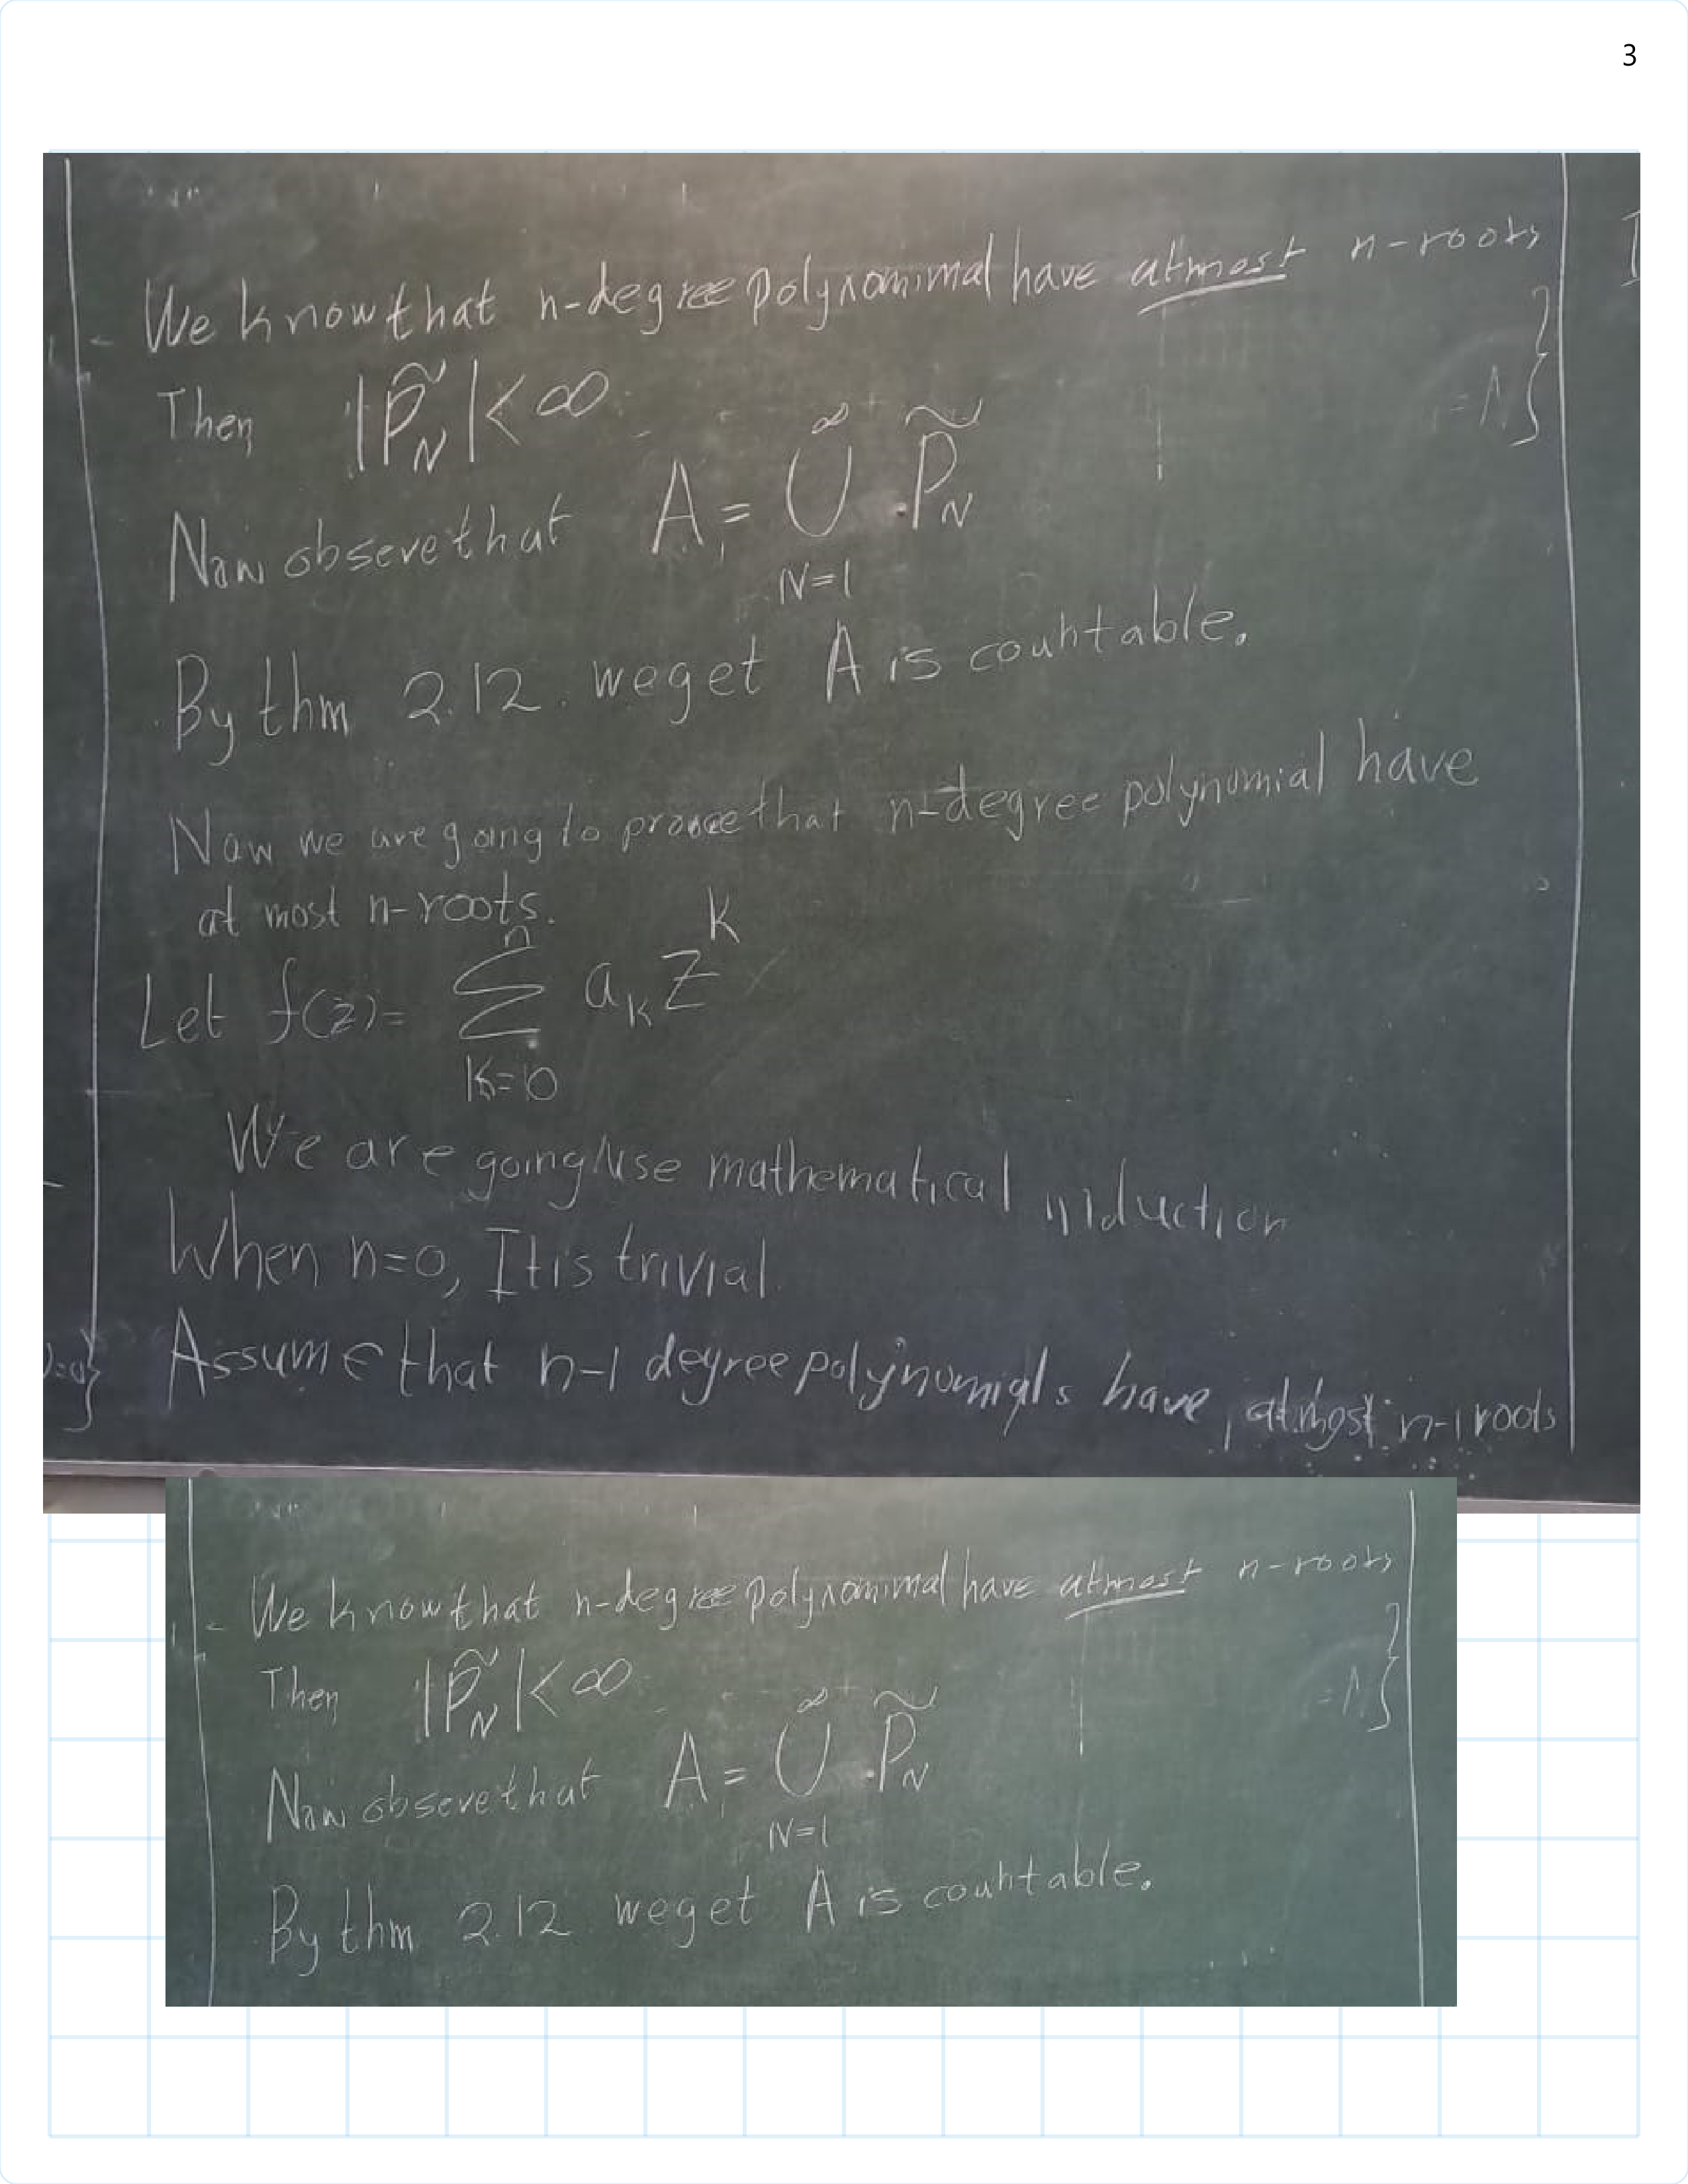 3
We know that n-degree polynomimal have atmost n-roots
Then |P̃_N| < ∞
= N}
Now obseve that A = ∞ ⋃ N=1 P̃_N
By thm 2.12. we get A is countable.
Now we are going to prove that n-degree polynomial have
at most n-roots.
Let f(z) = n ∑ K=0 a_K Z^K
We are going use mathematical induction
When n=0, It is trivial.
)=0} Assume that n-1 degree polynomials have atmost n-1 roots
We know that n-degree polynomimal have atmost n-roots
Then |P̃_N| < ∞
= N}
Now obseve that A = ∞ ⋃ N=1 P̃_N
By thm 2.12 we get A is countable.